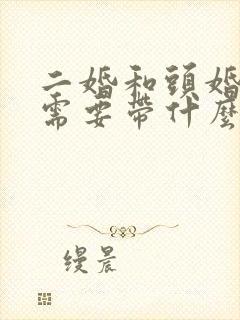 二婚和頭婚
需要帶什麼
缦晨